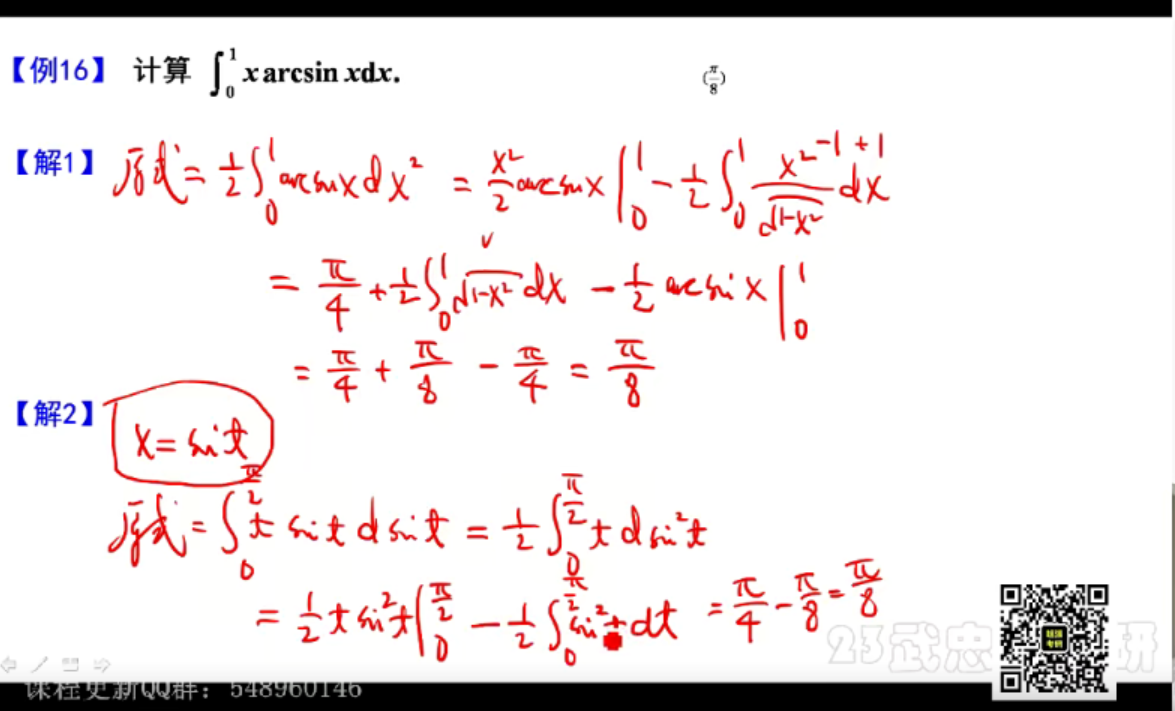 【例16】 计算 ∫₀¹ x arcsin xdx. (π/8)
【解1】 原式 = 1/2 ∫₀¹ arcsinx dx² = x²/2 arcsinx |₀¹ - 1/2 ∫₀¹ (x²-1+1)/√(1-x²) dx
= π/4 + 1/2 ∫₀¹ √(1-x²) dx - 1/2 arcsin x |₀¹
= π/4 + π/8 - π/4 = π/8
【解2】 x = sin t
原式 = ∫₀^(π/2) t sin t d sin t = 1/2 ∫₀^(π/2) t d sin²t
= 1/2 t sin²t |₀^(π/2) - 1/2 ∫₀^(π/2) sin²t dt = π/4 - π/8 = π/8
23武忠 研
课程更新QQ群：548960146